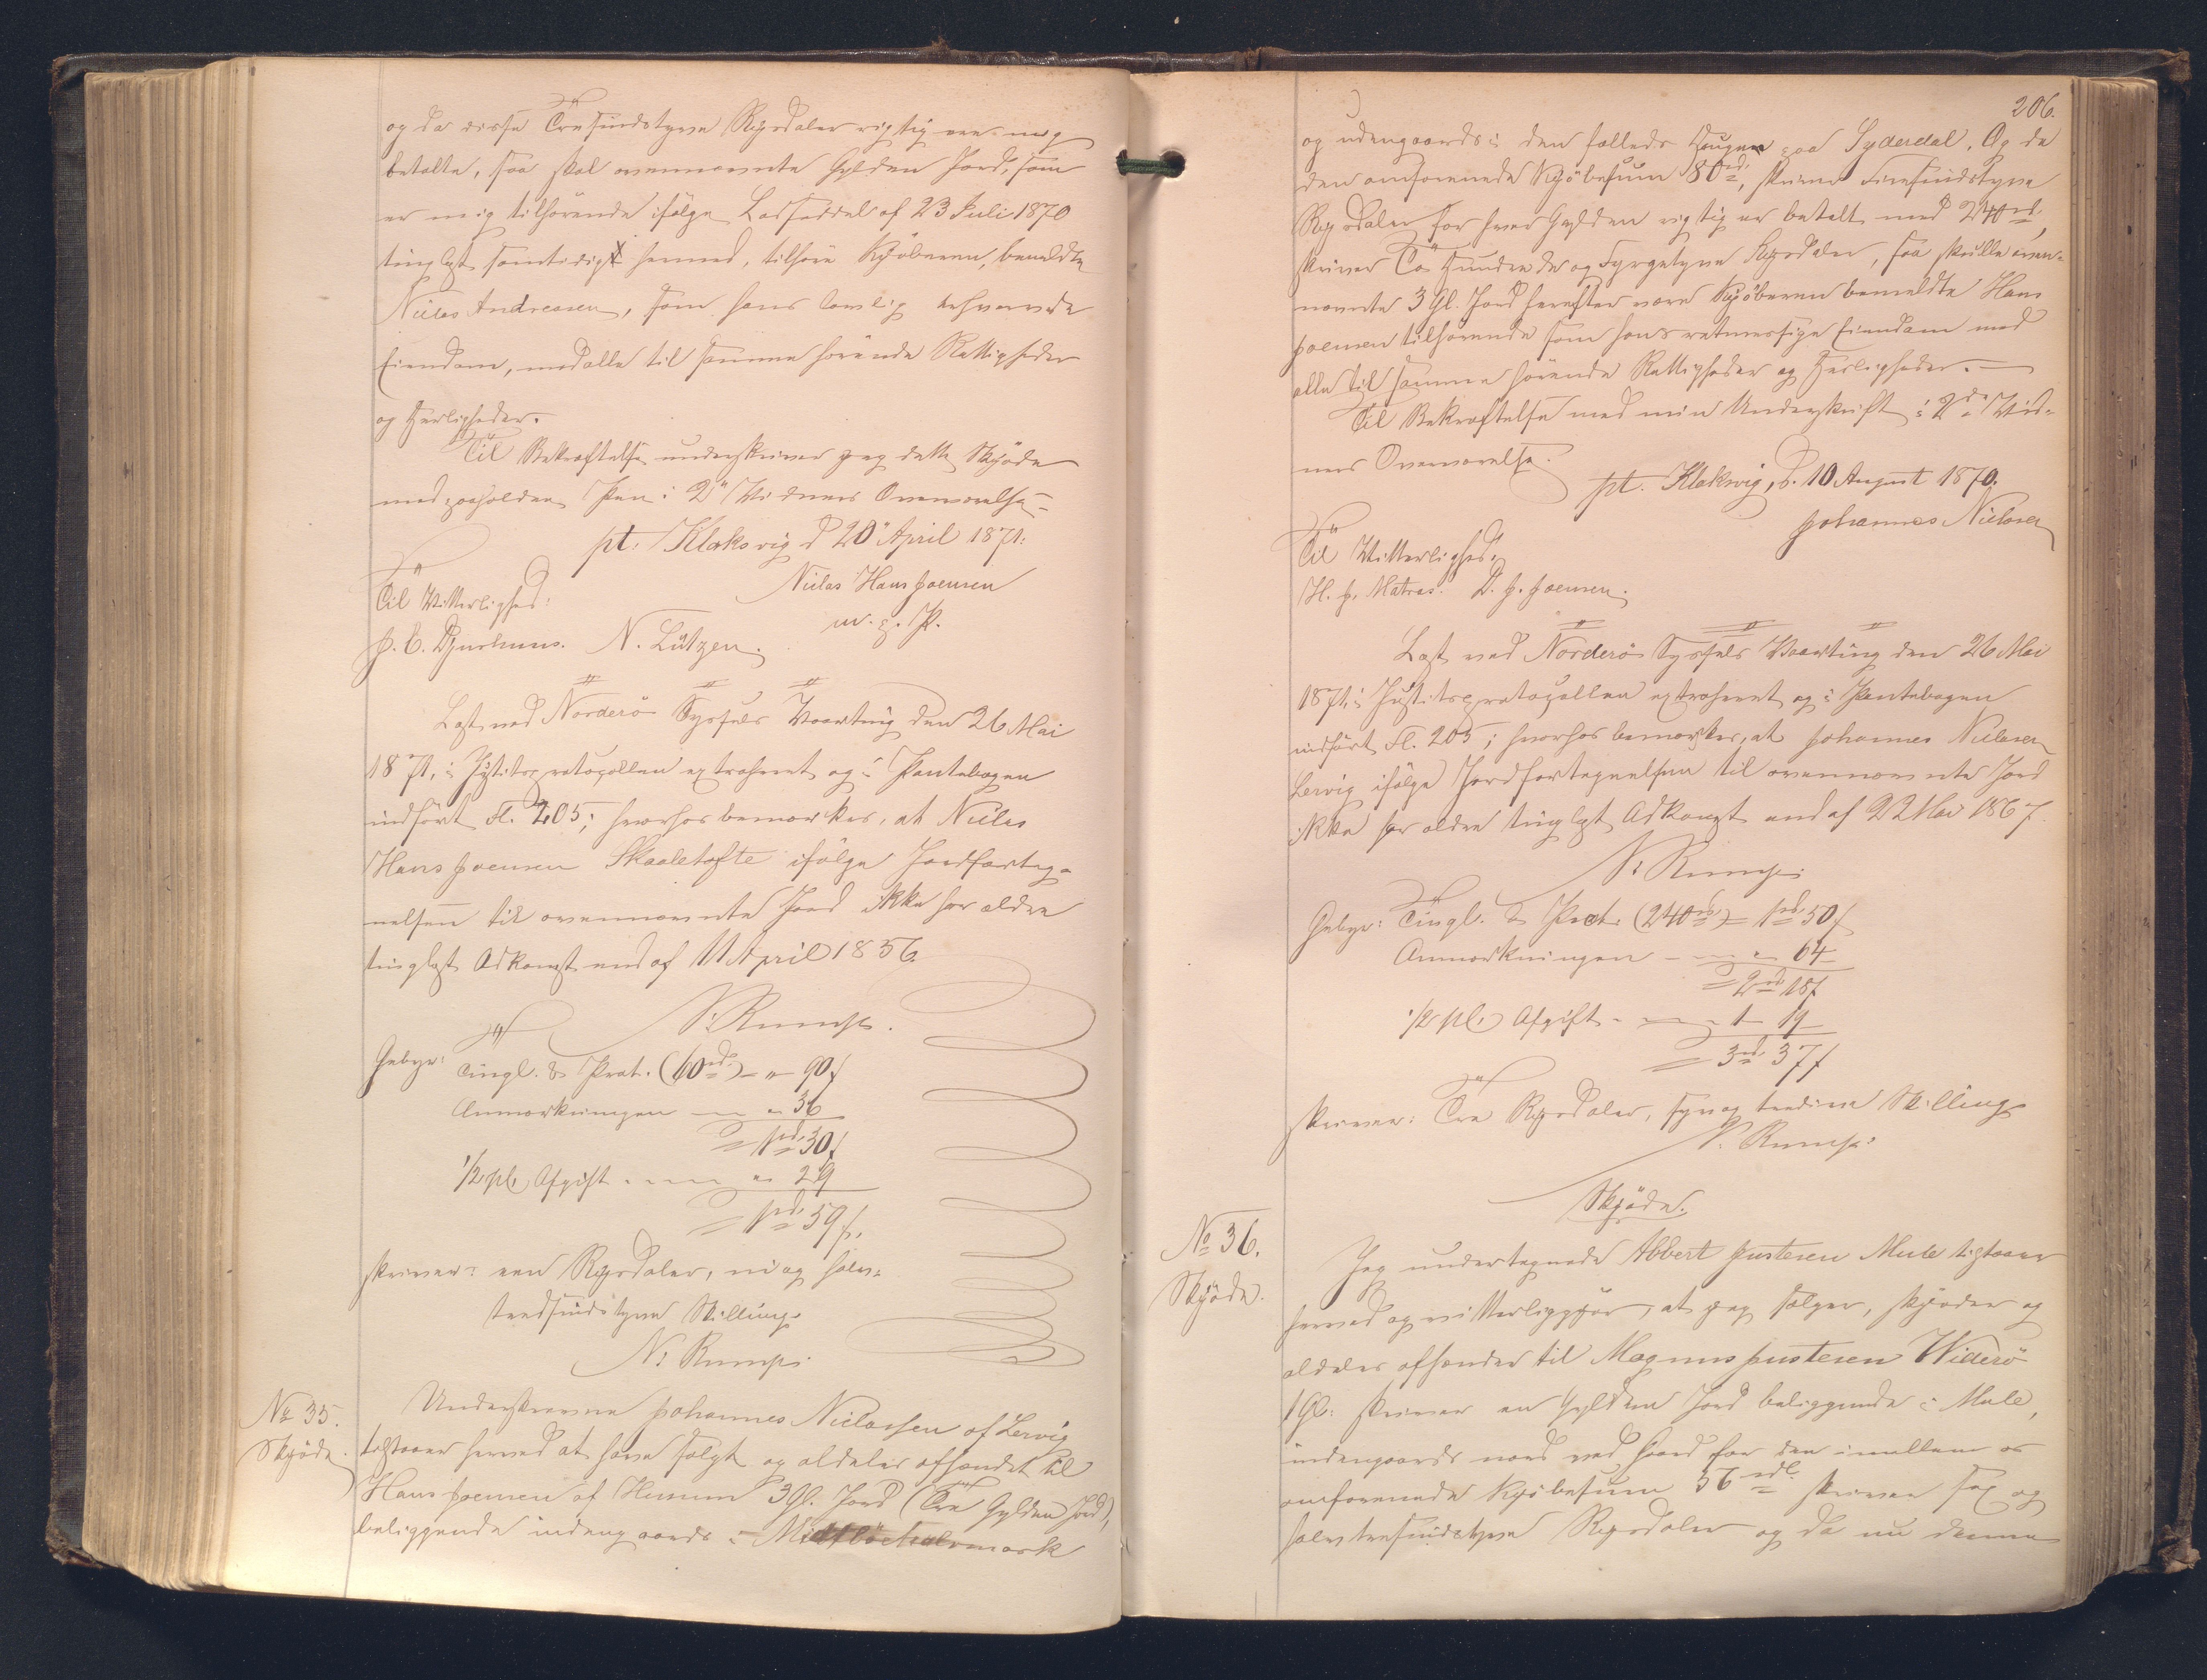 og da disse Tresindstyve Rigsdaler rigtig ere mig
betalte, saa skal ovennævnte Gylden Jord, som
er mig tilhørende ifølge Lodseddel af 23 Juli 1870
tinglæst samtidigt hermed, tilhøre Kjøberen, bemeldte
Niclas Andreasen, som hans lovlig erhvervede
Eiendom, med alle til samme hørende Rettigheder
og Herligheder.
Til Bekræftelse underskriver jeg dette Skjøde
med paaholden Pen i 2de Vidners Overværelse.
pt. Klaksvig d 20 April 1871.
Niclas Hans Joensen
m. p. P.
Til Vitterlighed:
J. C. Djurhuus. N. Lützen.
Læst ved Norderö Syssels Vaarting den 26 Mai
1871, i Justitsprotocollen extraheret og i Pantebogen
indført Fl. 205; hvorhos bemærkes, at Niclas
Hans Joensen Skaaletofte ifølge Jordforteg-
nelsen til ovennævnte Jord ikke har ældre
tinglæst Adkomst end af 11 April 1856.
N. Rump.
Gebyr: Tingl. & Prot. (60 rd.) - " - 90 s
Anmærkningen - " - 36
= 1 rd. 30 s
1/2 pCt Afgift - " 29
= 1 rd. 59 s.
skriver: een Rigsdaler, ni og halv-
tredsindstyve Skilling.
N. Rump.
No 35.
Skjöde.
Underskrevne Johannes Niclassen af Lervig
tilstaaer herved at have solgt og aldeles afhændet til
Hans Joensen af Husum 3 Gl. Jord (Tre Gylden Jord),
beliggende indengaards i
206.
og udengaards i den fælleds Haugen paa Syderdal. Og da
den omforenede Kjöbesum 80 rd., skriver Firesindstyve
Rigsdaler for hver Gylden rigtig er betalt med 240 rd,
skriver To Hundrede og Fyrgetyve Rigsdaler, saa skulle oven-
nævnte 3 Gl. Jord herefter være Kjöberen bemeldte Hans
Joensen tilhørende som hans retmæssige Eiendom med
alle til samme hørende Rettigheder og Herligheder. —
Til Bekræftelse med min Underskrift i 2de Vid-
ners Overværelse.
pt. Klaksvig, d. 10 August 1870.
Johannes Niclasen
Til Vitterlighed:
H. J. Matras. D. J. Joensen.
Læst ved Norderö Syssels Vaarting den 26 Mai
1871, i Justitsprotocollen extraheret og i Pantebogen
indført Fl. 205; hvorhos bemærkes, at Johannes Niclasen
Lervig ifølge Jordfortegnelsen til ovennævnte Jord
ikke har ældre tinglæst Adkomst end af 22 Mai 1867.
N. Rump.
Gebyr: Tingl. & Prot. (240 rd.) = 1 rd. 50 s
Anmærkningen - " - 64
= 2 rd 18 s
1/2 pCt. Afgift - 1 - 19
= 3 rd. 37 s
skriver: Tre Rigsdaler, syv og tredive Skilling.
N. Rump.
Skjöde.
No 36.
Skjöde.
Jeg undertegnede Abbert Justesen Mule tilstaaer
herved og vitterliggjør, at jeg sælger, skjøder og
aldeles afhænder til Magnus Justesen Widerö
1 Gl: skriver en Gylden Jord beliggende i Mule,
indengaards nord ved for den imellem os
omforenede Kjöbesum 56 rdl. skriver sex og
halvtresindstyve Rigsdaler og da nu denne